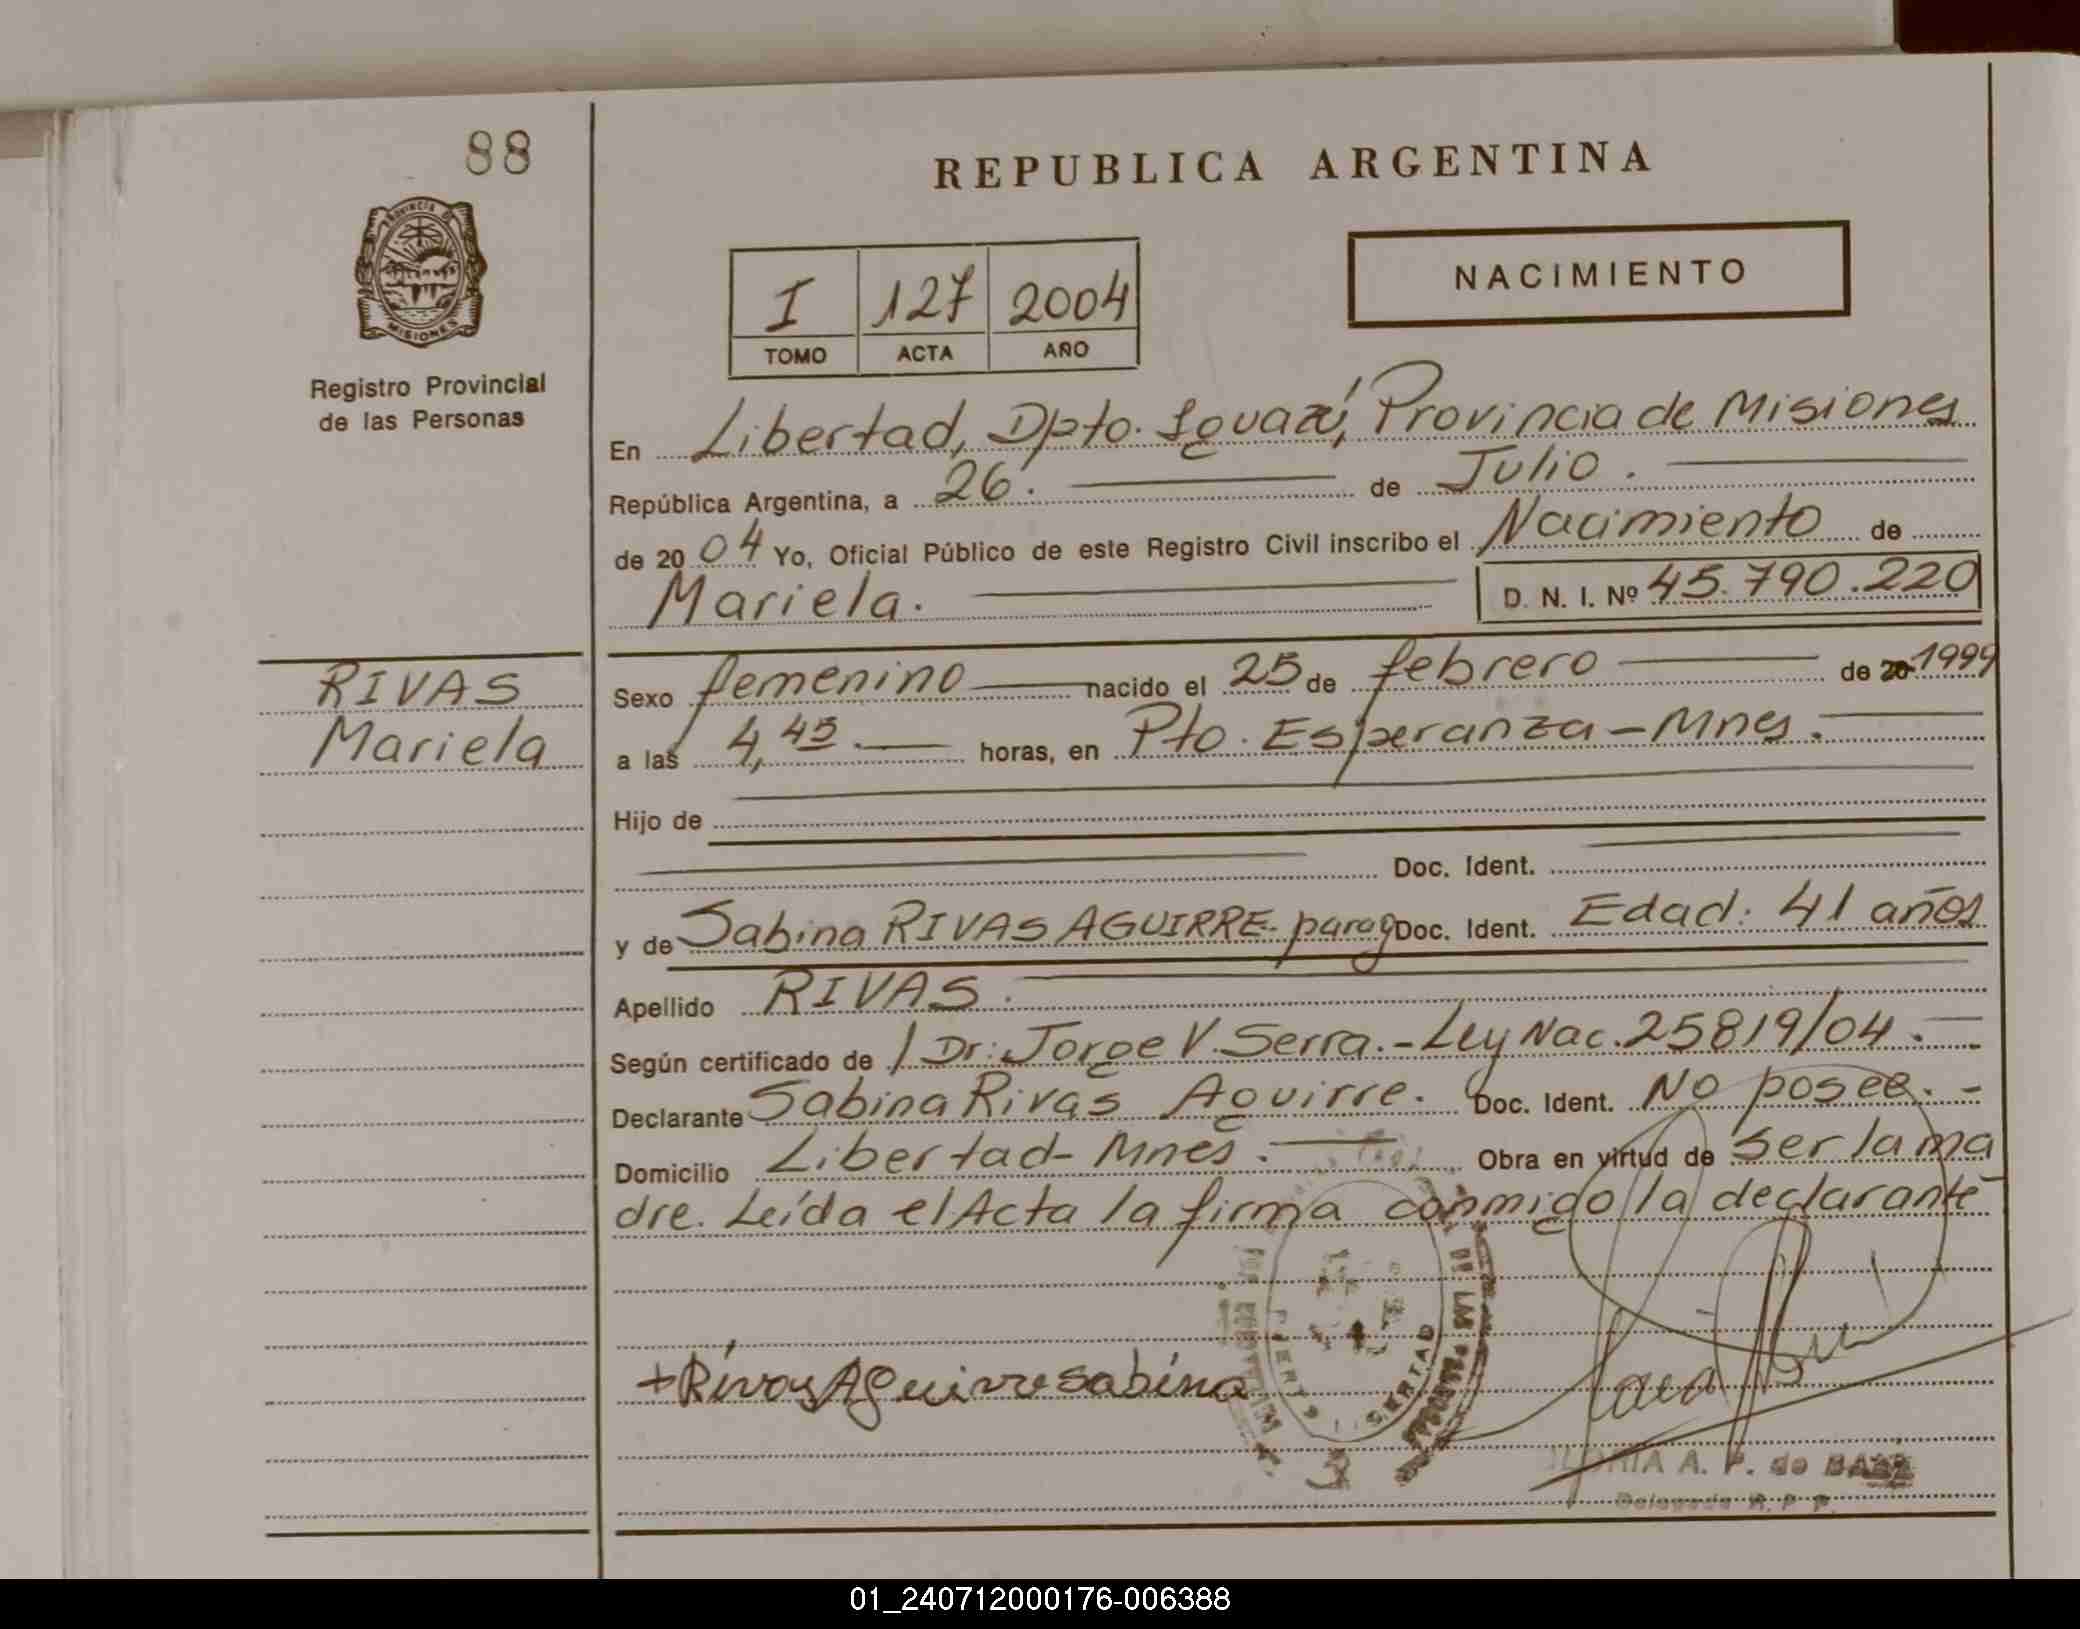 88
REPUBLICA ARGENTINA
PROVINCIA DE
MISIONES
I 127 2004
TOMO ACTA AÑO
NACIMIENTO
Registro Provincial
de las Personas
En Libertad, Dpto. Iguazú, Provincia de Misiones
República Argentina, a 26. de Julio.
de 2004 Yo, Oficial Público de este Registro Civil inscribo el Nacimiento de
Mariela. D. N. I. Nº 45.790.220
RIVAS
Mariela
Sexo femenino nacido el 25 de febrero de 20 1999
a las 4,45 horas, en Pto. Esperanza - Mnes.
Hijo de
Doc. Ident.
y de Sabina RIVAS AGUIRRE - parag Doc. Ident. Edad: 41 años
Apellido RIVAS.
Según certificado de Dr: Jorge V. Serra. - Ley Nac. 25819/04. -
Declarante Sabina Rivas Aguirre. Doc. Ident. No posee. -
Domicilio Libertad - Mnes. Obra en virtud de ser la ma
dre. Leída el Acta la firma conmigo la declarante
+ Rivas Aguirre Sabina
DE LAS PERSONAS
LIBERTAD
A. P. de
Delegada R. P. P.
01_240712000176-006388